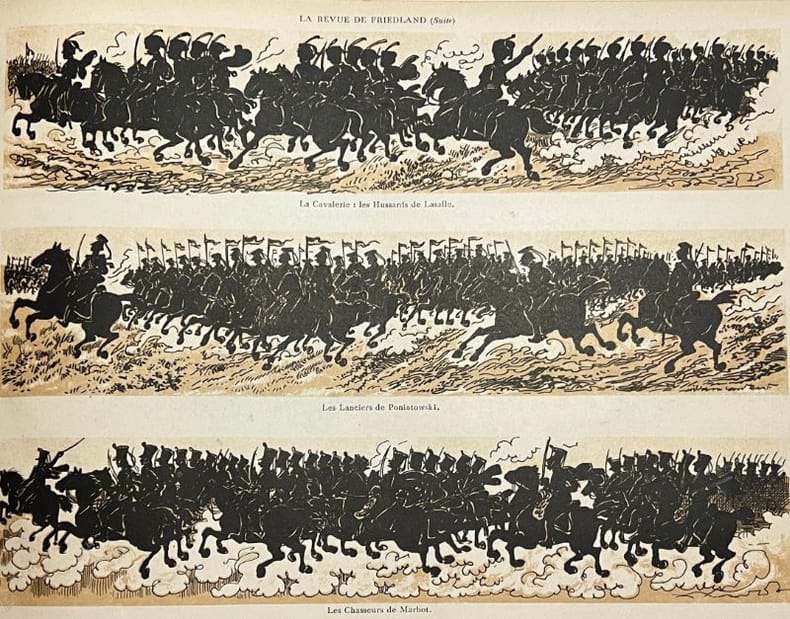 LA REVUE DE FRIEDLAND (Suite)
La Cavalerie : les Hussards de Lasalle.
Les Lanciers de Poniatowski.
Les Chasseurs de Marbot.